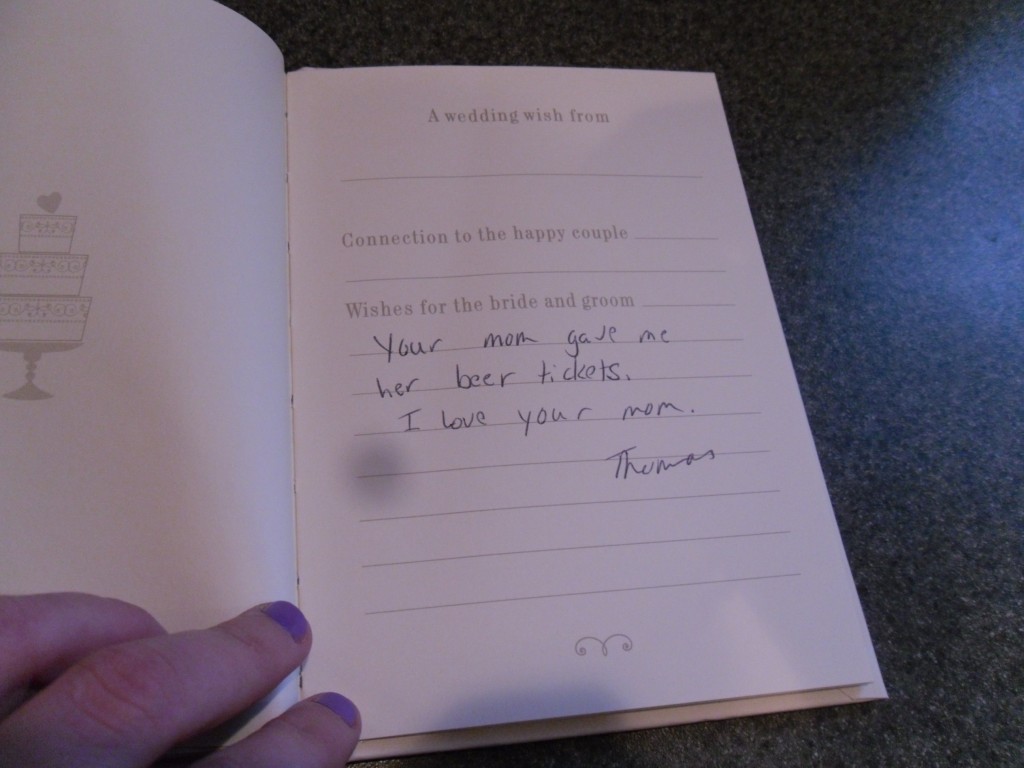 A wedding wish from
Connection to the happy couple
Wishes for the bride and groom
Your mom gave me
her beer tickets.
I love your mom.
Thomas